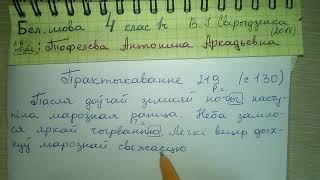 Бел. мова 4 клас 1ч В. І. Свірыдзенка
(2018)
Тофелева Антонина Аркадьевна
Практыкаванне 219 (с 130)
Р.с.
Пасля доўгай зімняй ночы насту-
піла марозная раніца. Неба заняло-
ся яркай чырванню. Лёгкі вецер дых-
нуў марознай свежасцю